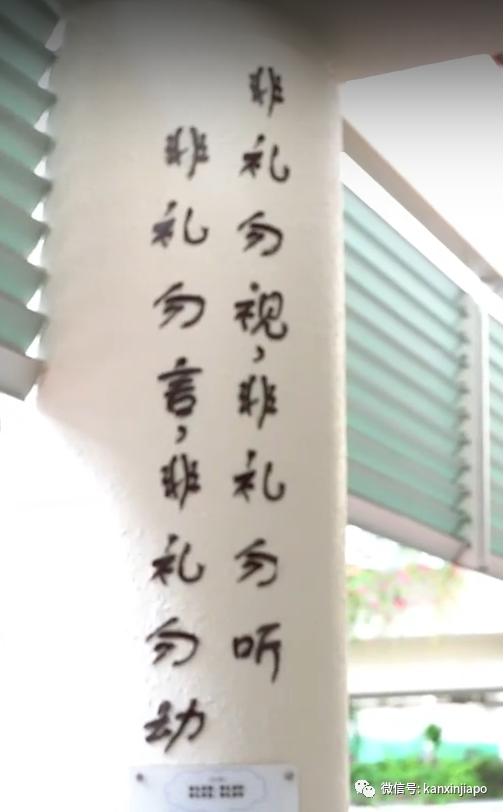 非礼勿视，非礼勿听
非礼勿言，非礼勿动
微信号: kanxinjiapo